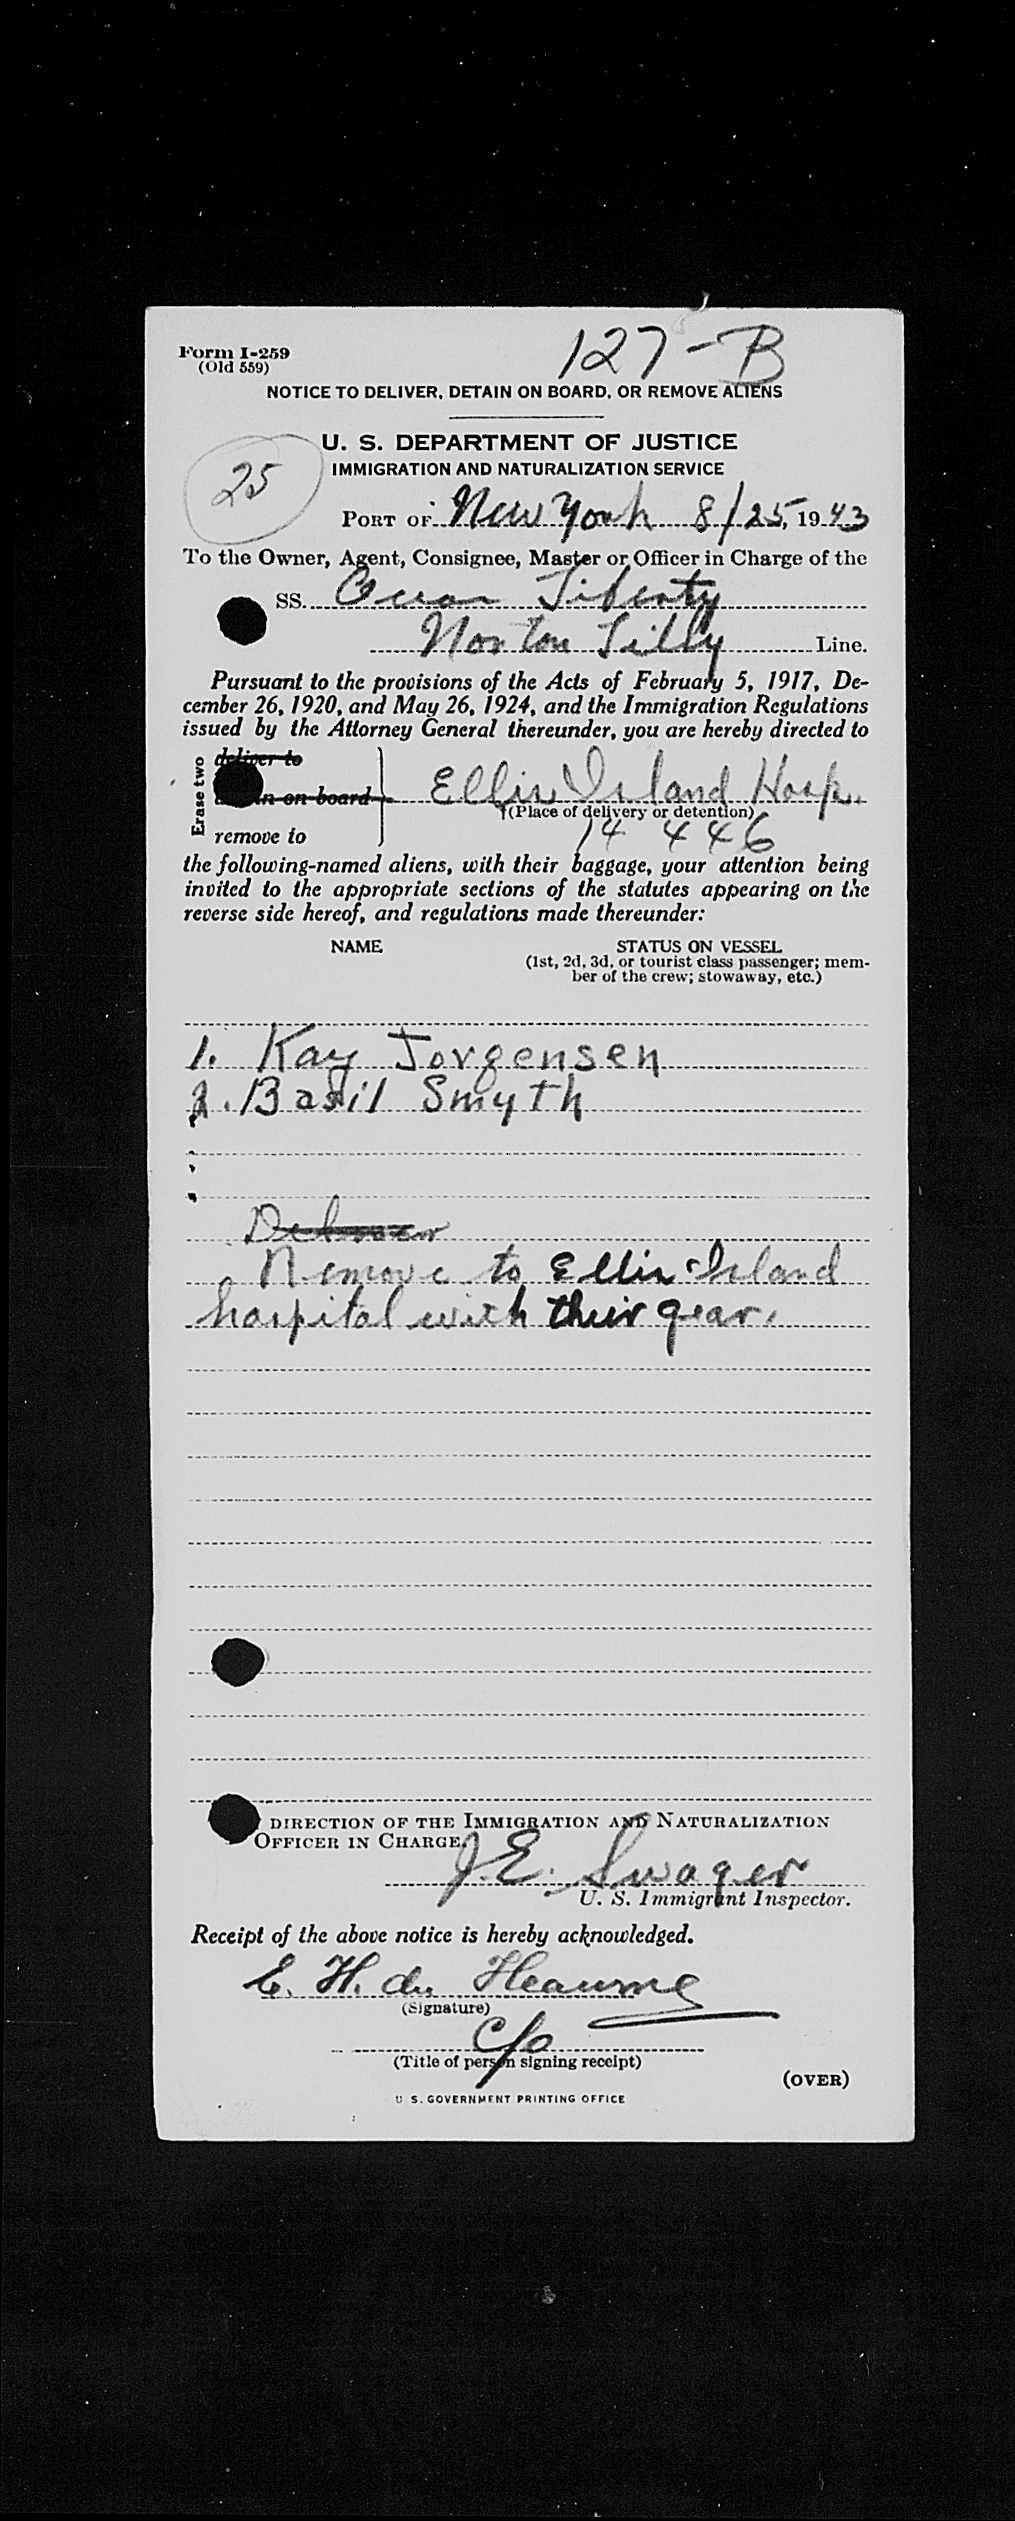 127-B
Form I-259
(Old 559)
NOTICE TO DELIVER, DETAIN ON BOARD, OR REMOVE ALIENS
U. S. DEPARTMENT OF JUSTICE
IMMIGRATION AND NATURALIZATION SERVICE
25
PORT OF New York 8/25, 1943
To the Owner, Agent, Consignee, Master or Officer in Charge of the
SS. Ocean Liberty
Norton Lilly Line.
Pursuant to the provisions of the Acts of February 5, 1917, De-
cember 26, 1920, and May 26, 1924, and the Immigration Regulations
issued by the Attorney General thereunder, you are hereby directed to
Erase two
deliver to
on board
Ellis Island Hosp.
(Place of delivery or detention)
14 446
remove to
the following-named aliens, with their baggage, your attention being
invited to the appropriate sections of the statutes appearing on the
reverse side hereof, and regulations made thereunder:
NAME STATUS ON VESSEL
(1st, 2d, 3d, or tourist class passenger; mem-
ber of the crew; stowaway, etc.)
1. Kay Jorgensen
2. Basil Smyth
Remove to Ellis Island
hospital with their gear.
DIRECTION OF THE IMMIGRATION AND NATURALIZATION
OFFICER IN CHARGE.
J. E. Swager
U. S. Immigrant Inspector.
Receipt of the above notice is hereby acknowledged.
E. H. du Heaume
(Signature)
C/o
(Title of person signing receipt)
(OVER)
U S. GOVERNMENT PRINTING OFFICE